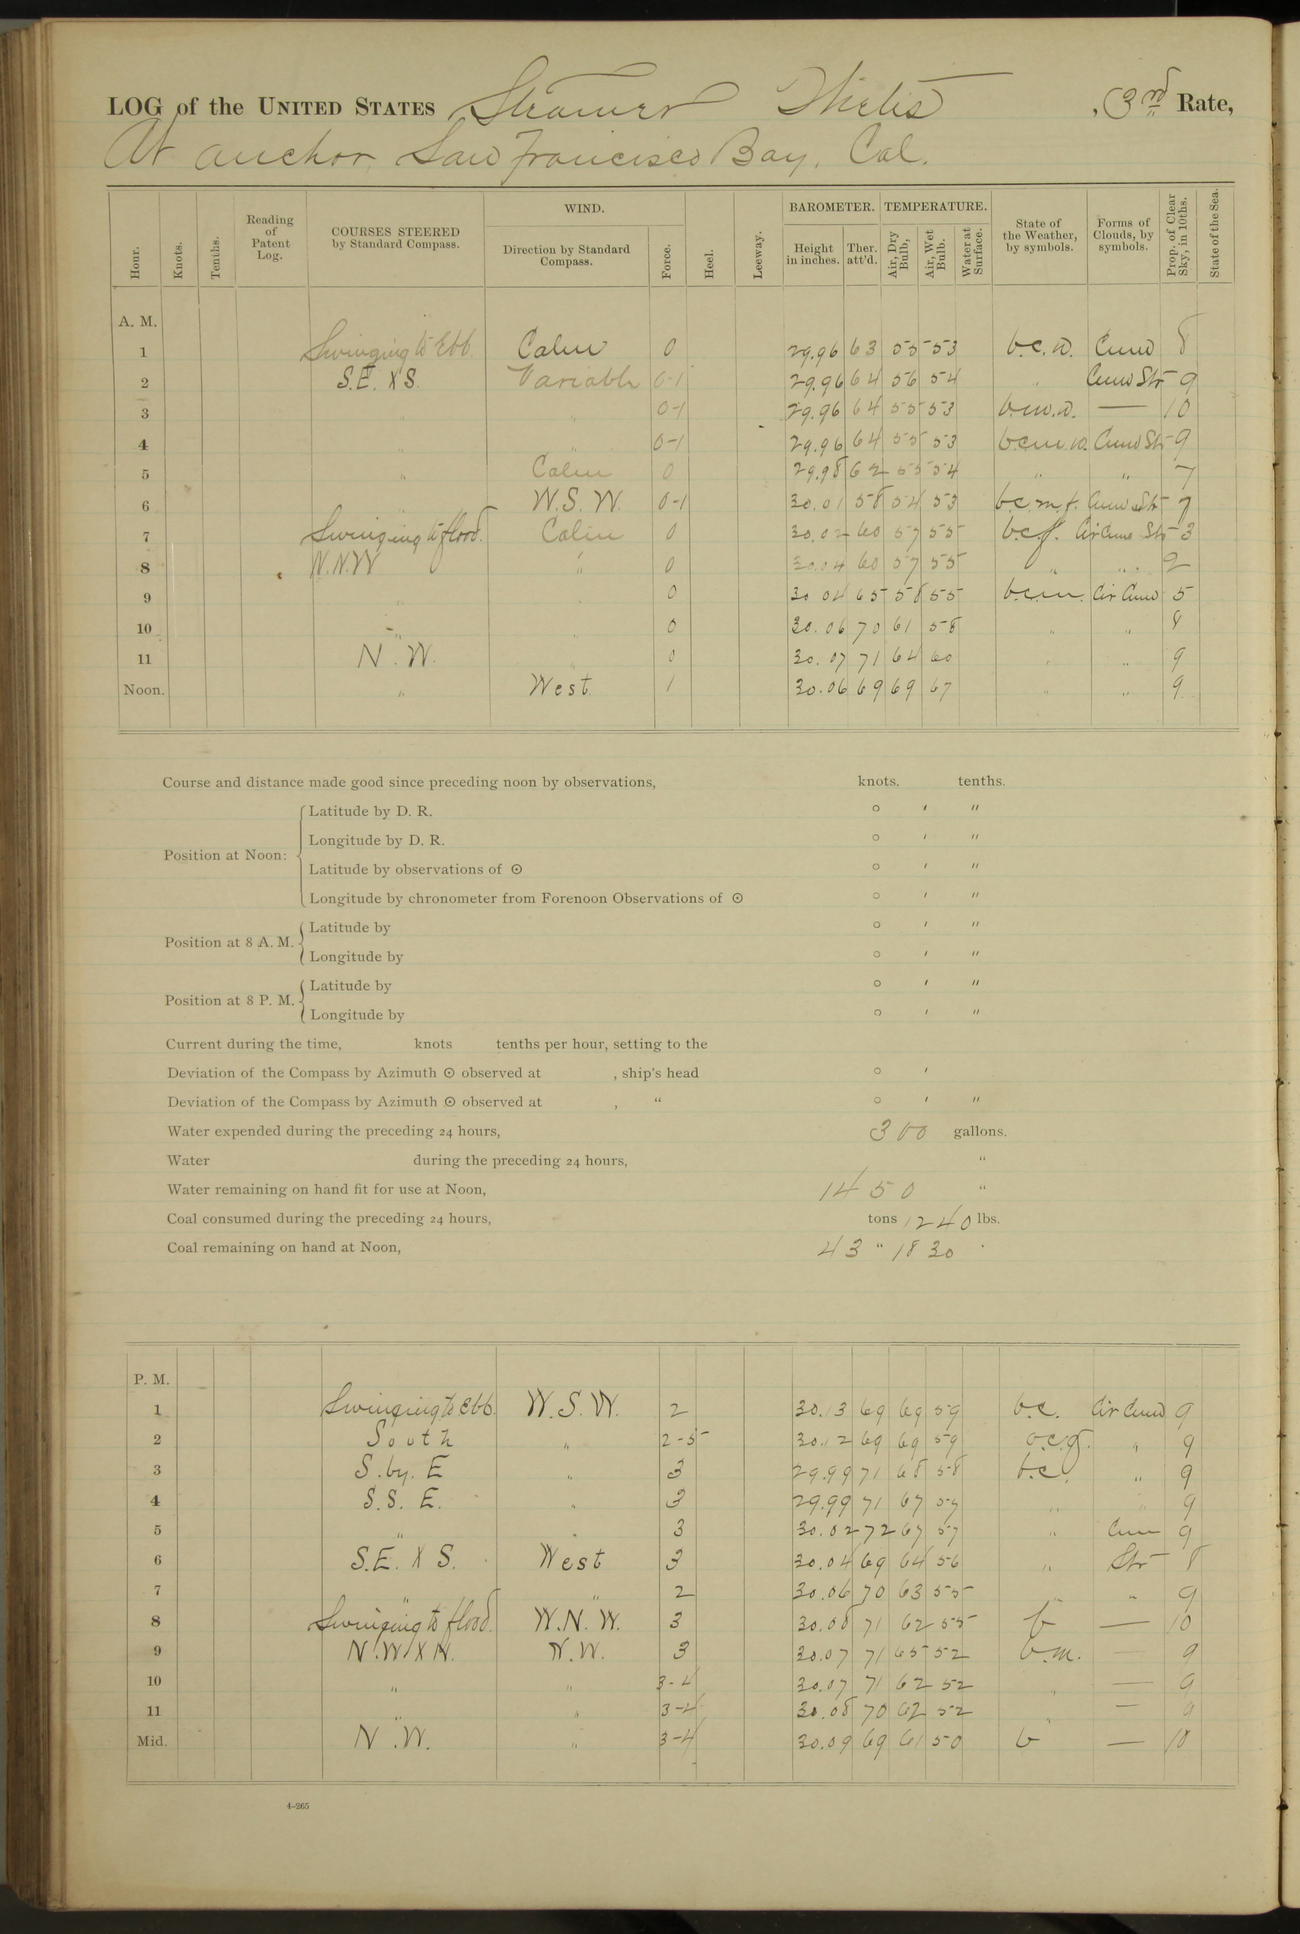 LOG of the UNITED STATES Steamer Thetis, 3rd Rate,
At anchor, San Francisco Bay, Cal.
Hour. Knots. Tenths. Reading of Patent Log. COURSES STEERED by Standard Compass. WIND. Direction by Standard Compass. Force. Heel. Leeway. BAROMETER. Height in inches. Ther. att'd. TEMPERATURE. Air, Dry Bulb. Air, Wet Bulb. Water at Surface. State of the Weather, by symbols. Forms of Clouds, by symbols. Prop. of Clear Sky, in 10ths. State of the Sea.
A. M.
1 Swinging to Ebb. Calm 0 29.96 63 55 53 b.c.w. Cum 8
2 S.E. X S. Variable 0-1 29.96 64 56 54 " Cum Str 9
3 " " 0-1 29.96 64 55 53 b.m.w. — 10
4 " " 0-1 29.96 64 55 53 b.c.m.w. Cum Str 9
5 " Calm 0 29.98 62 55 54 " " 7
6 " W.S.W. 0-1 30.01 58 54 53 b.c.m.f. Cum Str 7
7 Swinging to flood. Calm 0 30.02 60 57 55 b.c.f. Cir Cum Str 3
8 N.N.W " 0 30.04 60 57 55 " " 2
9 " " 0 30 04 65 58 55 b.c.m. Cir Cum 5
10 " " 0 30.06 70 61 58 " " 8
11 N.W. " 0 30.07 71 64 60 " " 9
Noon. " West 1 30.06 69 69 67 " " 9
Course and distance made good since preceding noon by observations, knots. tenths.
Position at Noon: Latitude by D. R. ° ′ ″
Longitude by D. R. ° ′ ″
Latitude by observations of ☉ ° ′ ″
Longitude by chronometer from Forenoon Observations of ☉ ° ′ ″
Position at 8 A. M. Latitude by ° ′ ″
Longitude by ° ′ ″
Position at 8 P. M. Latitude by ° ′ ″
Longitude by ° ′ ″
Current during the time, knots tenths per hour, setting to the
Deviation of the Compass by Azimuth ☉ observed at , ship's head ° ′
Deviation of the Compass by Azimuth ☉ observed at , " ° ′ ″
Water expended during the preceding 24 hours, 300 gallons.
Water during the preceding 24 hours, "
Water remaining on hand fit for use at Noon, 1450 "
Coal consumed during the preceding 24 hours, tons 1240 lbs.
Coal remaining on hand at Noon, 43 " 1830 "
P. M.
1 Swinging to Ebb. W.S.W. 2 30.13 69 69 59 b.c. Cir Cum 9
2 South " 2-3 30.12 69 69 59 " 9
3 S. by. E " 3 29.99 71 68 58 b.c. " 9
4 S.S.E. " 3 29.99 71 67 57 " " 9
5 " " 3 30.02 72 67 57 " Cum 9
6 S.E. X S. West 3 30.04 69 64 56 " Str 8
7 " " 2 30.06 70 63 55 " " 9
8 Swinging to flood. W.N.W. 3 30.08 71 62 55 b — 10
9 N.W. X N. N.W. 3 30.07 71 65 52 b.m. — 9
10 " " 3-4 30.07 71 62 52 " — 9
11 " " 3-4 30.08 70 62 52 " — 9
Mid. N.W. " 3-4 30.09 69 61 50 b — 10
4-265